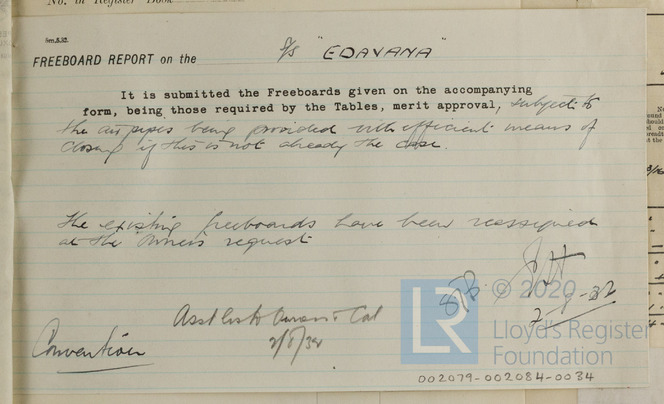 No. in Register Book
5m,8.32.
FREEBOARD REPORT on the S/S "EDAVANA"
It is submitted the Freeboards given on the accompanying
form, being those required by the Tables, merit approval, subject to
the air pipes being provided with efficient means of
closing if this is not already the case.
The existing freeboards have been reassigned
at the Owners request
© 2020
Lloyd's Register
Foundation
Convention
002079-002084-0034